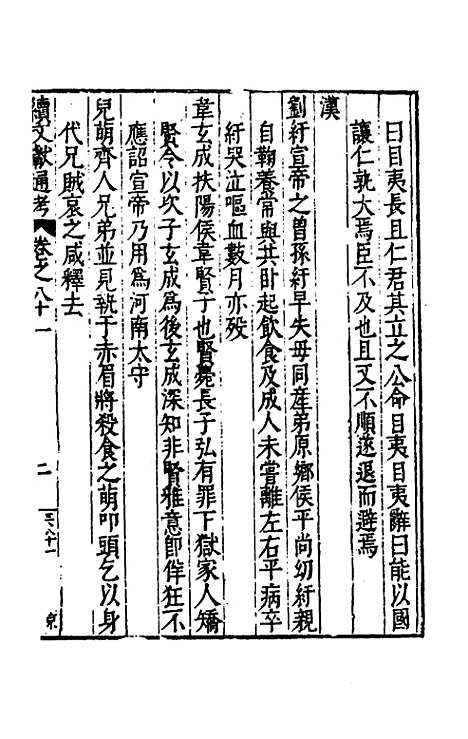 曰目夷長且仁君其立之公命目夷目夷辭曰能以國
讓仁孰大焉臣不及也且又不順遂退而避焉
漢
劉紆宣帝之曾孫紆早失母同産弟原鄉侯平尚幼紆親
自鞠養常與共卧起飲食及成人未嘗離左右平病卒
紆哭泣嘔血數月亦殁
韋玄成扶陽侯韋賢子也賢薨長子弘有罪下獄家人矯
賢令以次子玄成爲後玄成深知非賢雅意即佯狂不
應詔宣帝乃用爲河南太守
兒萌齊人兄弟並見執于赤眉將殺食之萌叩頭乞以身
代兄賊哀之咸釋去
續文獻通考 卷之八十一 二